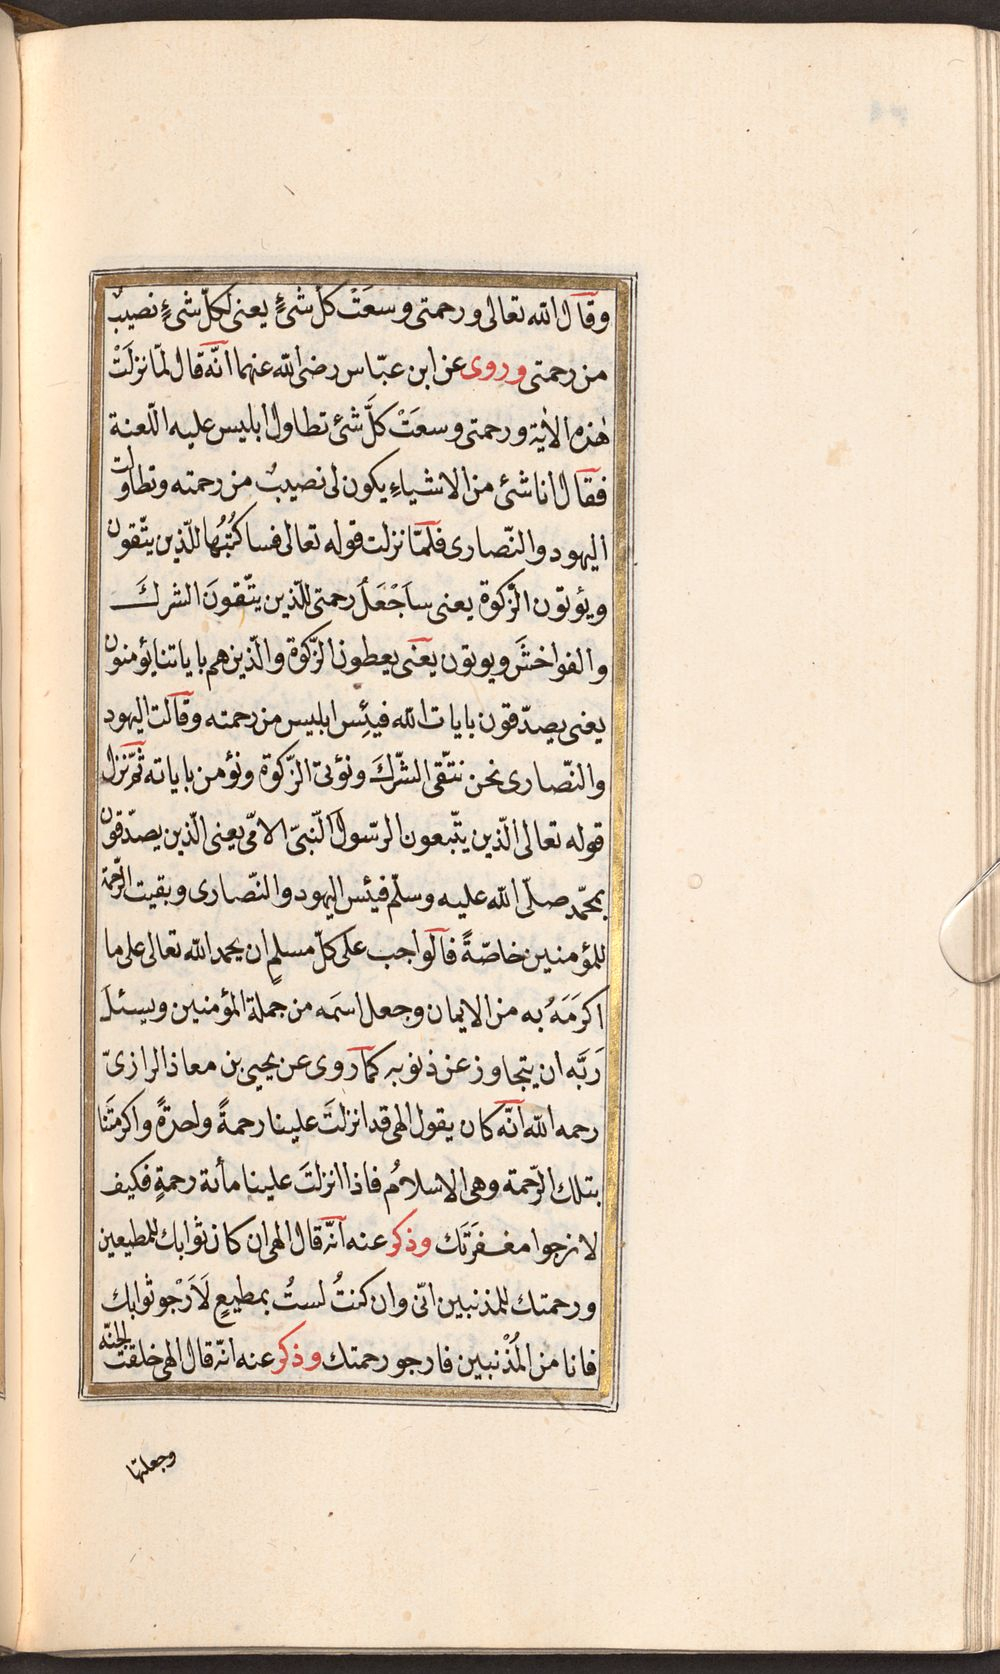 وقال الله تعالى ورحمتى وسعَتْ كلَّ شىءٍ يعنى لكلّ شىءٍ نصيبٌ
من رحمتى وروى عن ابن عبّاس رضى الله عنهما انّه قال لمّا نزلَتْ
هٰذه الاٰية ورحمتى وسعَتْ كلَّ شئ تطاول ابليس عليه اللّعنة
فقال انا شئ من الاشياءِ يكون لى نصيبٌ من رحمته وتطاولت
اليهود والنّصارى فلمّا نزلت قوله تعالى فساكتُبُها للّذين يتّقون
ويؤتون الزّكوة يعنى ساَجْعَلُ رحمتى للّذين يتّقونَ الشرك
والفواخشَ ويوتون يعنى يعطون الزّكوة والّذين هم باياتنا يؤمنون
يعنى يصدّقون بايات الله فيئِس ابليس من رحمته وقالت اليهود
والنّصارى نحن نتّقى الشّركَ ونؤتى الزّكوة ونؤمن باياته ثمّ نزل
قوله تعالى الّذين يتّبعون الرسّولَ النّبىّ الامّى يعنى الّذين يصدّقون
بمحّمد صلّى الله عليه وسلّم فيئس اليهود والنّصارى وبقيت الرّحمة
للمؤمنين خاصّةً فالواجب على كلّ مسلمٍ ان يحمد الله تعالى على ما
اكرَمَهُ به من الايمان وجعل اسمَه من جملة المؤمنين ويسئلَ
رَبَّه ان يتجاوز عن ذنوبه كما روى عن يحيى بن معاذ الرازىّ
رحمه الله انّه كان يقول الهى قد انزلتَ علينا رحمةً واحدةً واكرمتَنا
بتلك الرّحمة وهى الاسلامُ فاذا انزلتَ علينا مأئة رحمةٍ فكيف
لا نرجوا مغفرَتَك وذكر عنه انّه قال الهى ان كان ثوابك للمطيعين
ورحمتك للمذنبين انّى وان كنتُ لستُ بمطيعٍ لَاَرْجو ثوابك
فانا من المُذْنبين فارجو رحمتك وذكر عنه انّه قال الهى خلقت الجنّة
وجعلتها